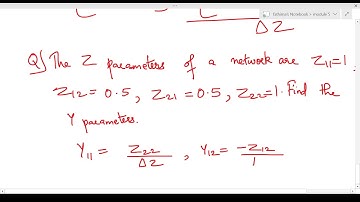 ΔZ
Q) The Z parameters of a network are Z11=1
Z12=0.5, Z21=0.5, Z22=1. Find the
Y parameters.
Y11 = Z22/ΔZ , Y12 = -Z12/